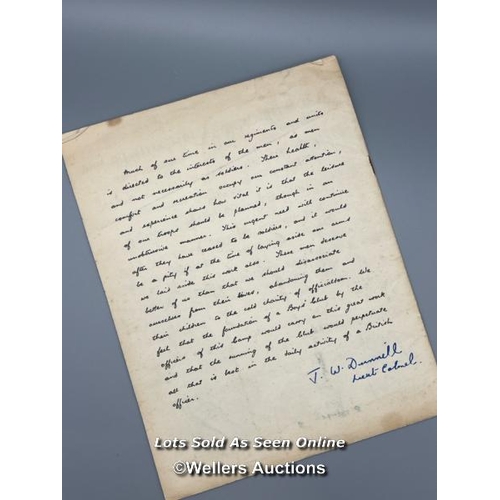 Much of our time in our regiments and units
is directed to the interests of the men, as men
and not necessarily as soldiers. Their health,
comfort and recreation occupy our constant attention,
and experience shows how vital it is that the leisure
of our troops should be planned, though in an
unobtrusive manner. This urgent need will continue
after they have ceased to be soldiers, and it would
be a pity if at the time of laying aside our arms
we laid aside this work also. These men deserve
better of us than that we should disassociate
ourselves from their lives, abandoning them and
their children to the cold charity of officialdom. We
feel that the foundation of a Boys' Club by the
officers of this Camp would carry on this great work
and that the running of the club would perpetuate
all that is best in the daily activity of a British
officer.
J. W. Dunnill
Lieut Colonel.
Lots Sold As Seen Online
©Wellers Auctions